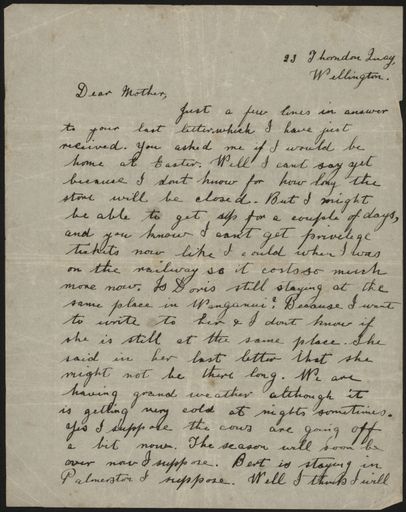 23 Thorndon Quay,
Wellington.
Dear Mother,
Just a few lines in answer
to your last letter which I have just
received. You asked me if I would be
home at Easter. Well I cant say yet
because I dont know for how long the
store will be closed. But I might
be able to get up for a couple of days,
and you know I can't get privilege
tickets now like I could when I was
on the railway so it costs so much
more now. Is Doris still staying at the
same place in Wanganui? Because I want
to write to her & I don't know if
she is still at the same place. She
said in her last letter that she
might not be there long. We are
having grand weather although it
is getting very cold at nights sometimes.
Yes I suppose the cows are going off
a bit now. The season will soon be
over now I suppose. Bert is staying in
Palmerston I suppose. Well I think I will